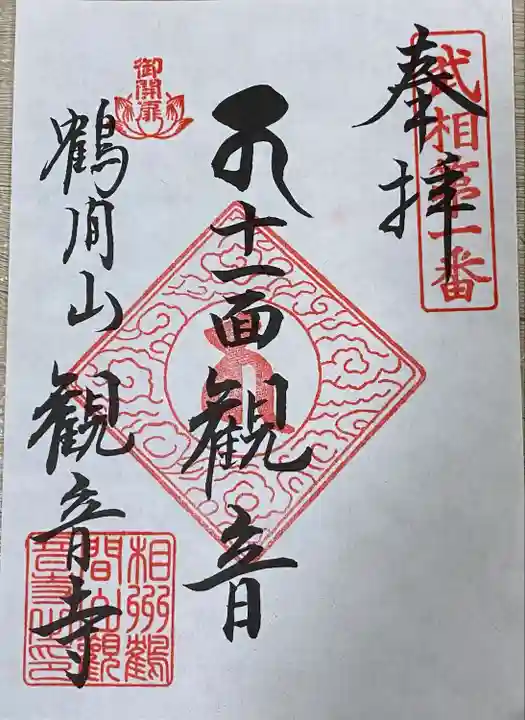 武相第一番
奉拝
十一面観音
御開扉
鶴間山 観音寺
相州鶴
間山觀